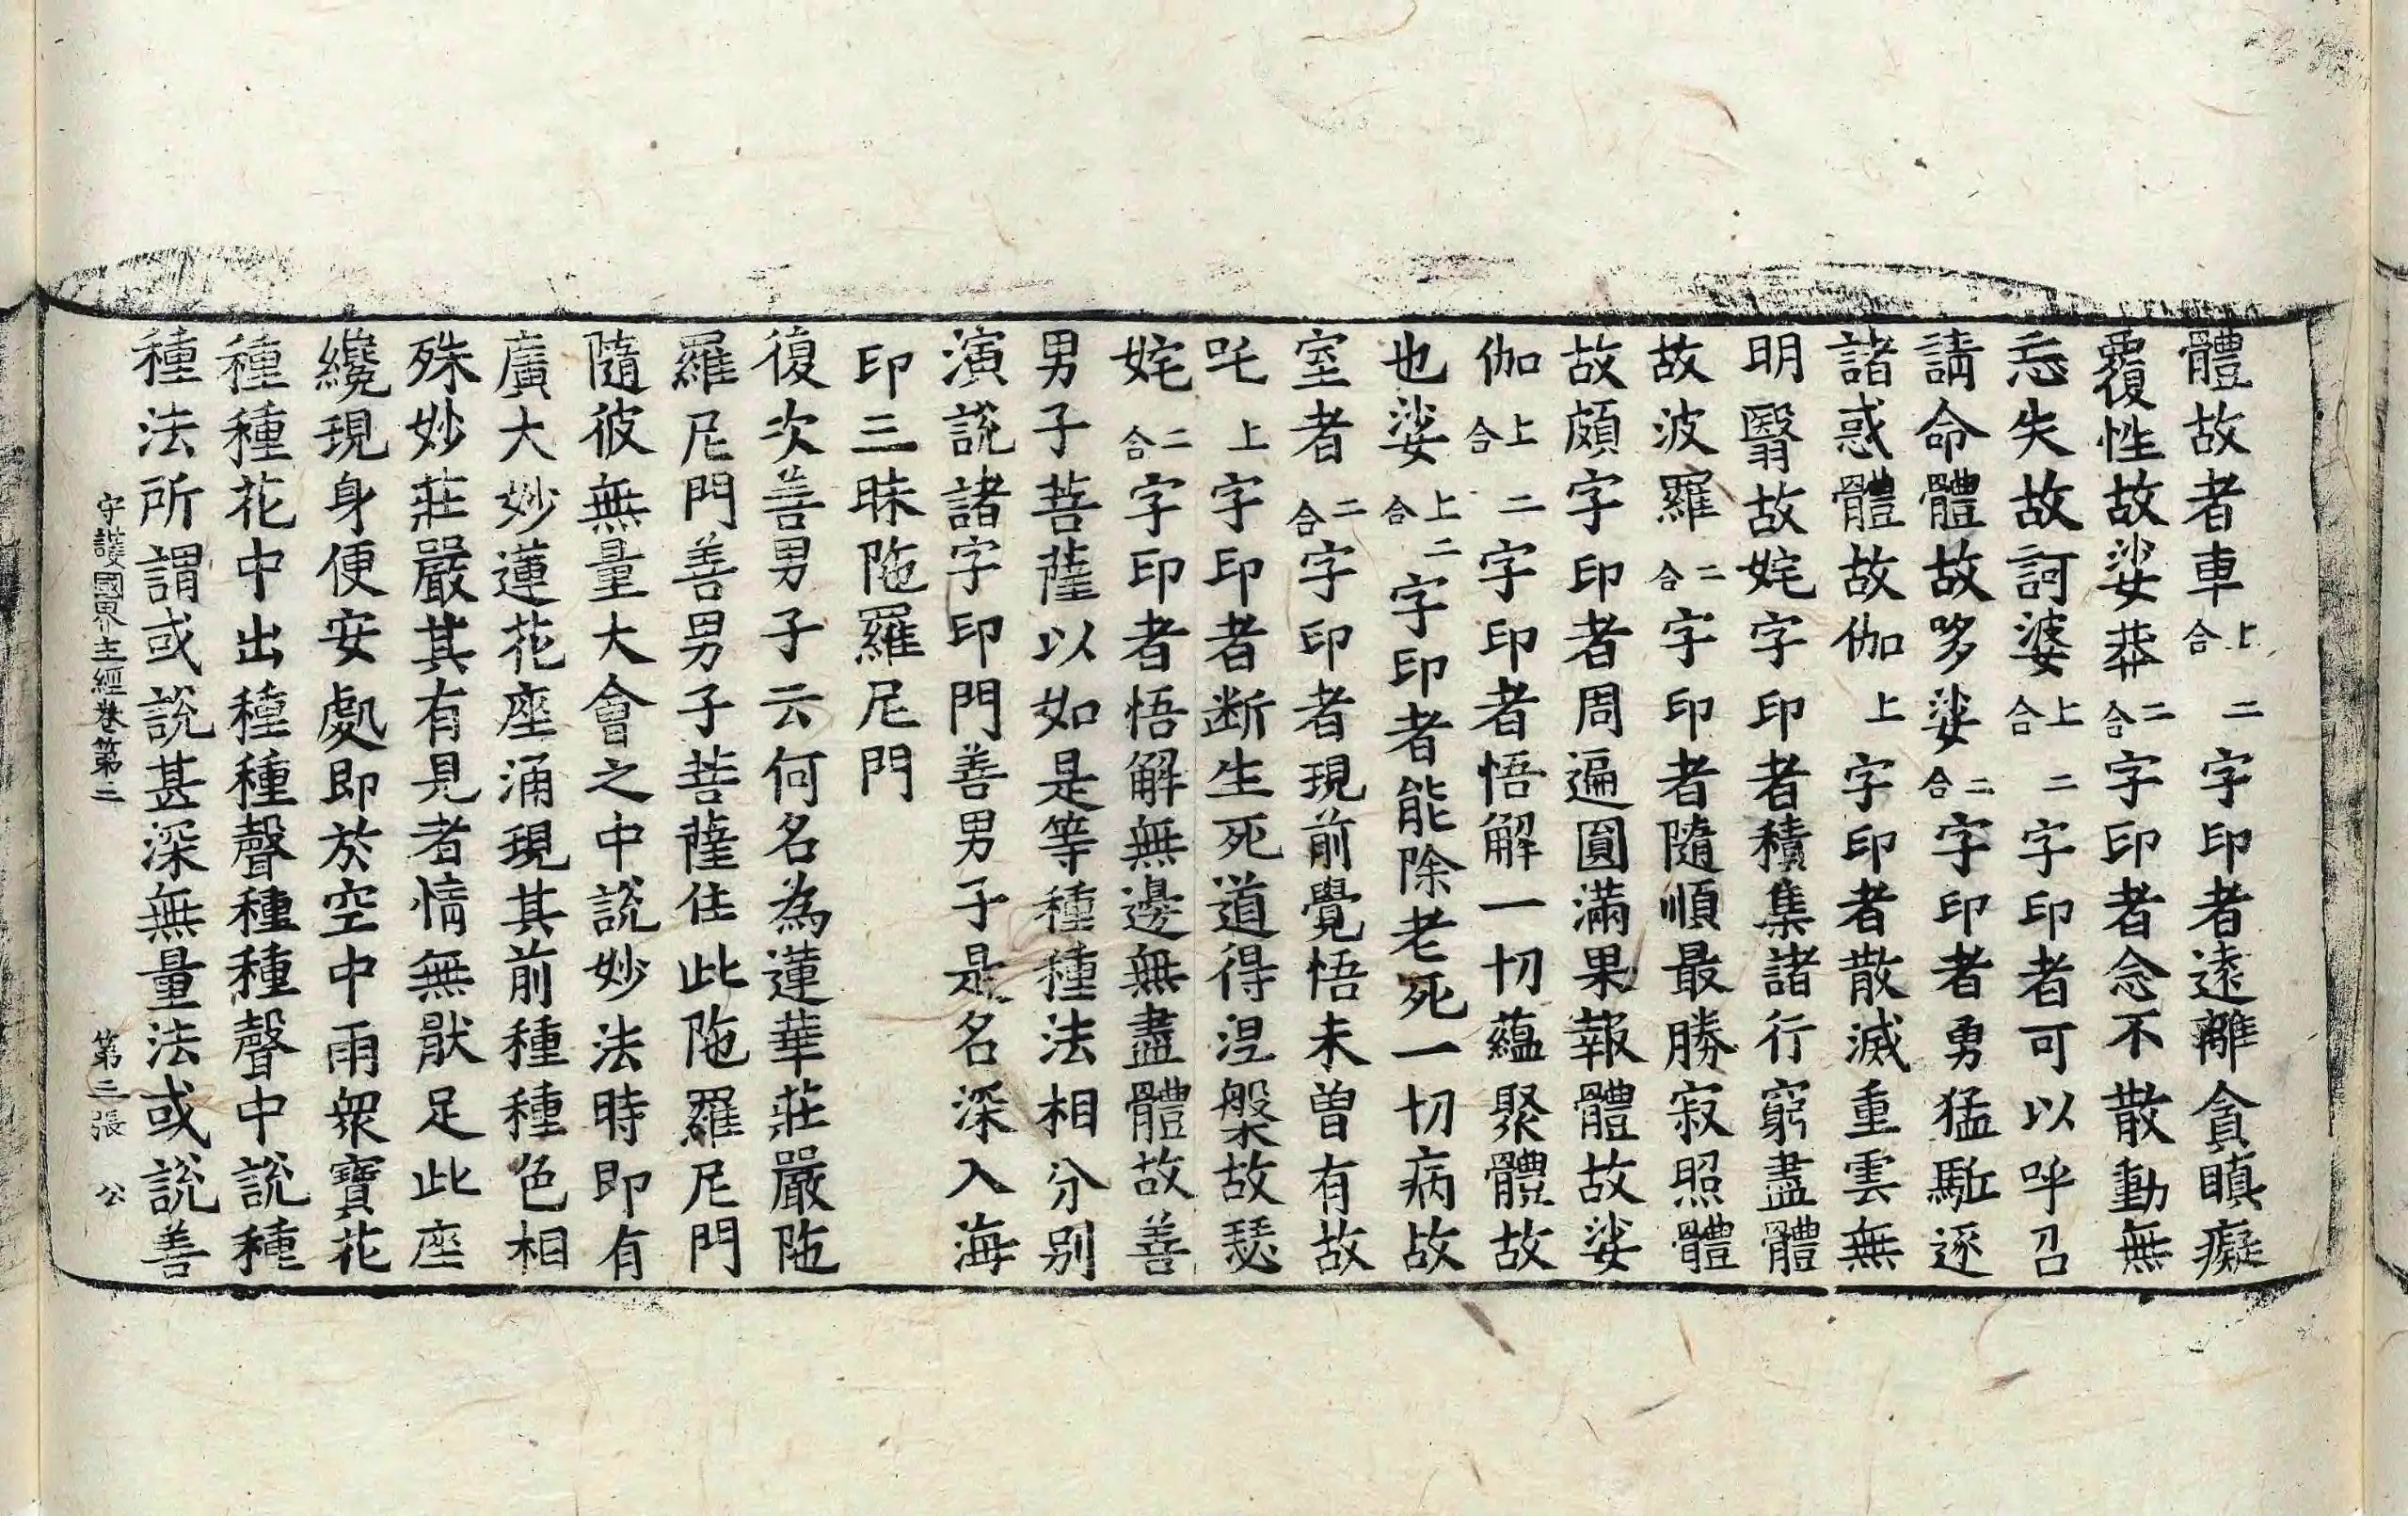 體故者車上二合字印者遠離貪瞋癡
覆性故娑莽二合字印者念不散動無
忘失故訶婆上二合字印者可以呼召
請命體故哆娑二合字印者勇猛駈逐
諸惑體故伽上字印者散滅重雲無
明翳故姹字印者積集諸行窮盡體
故波羅二合字印者隨順最勝寂照體
故頗字印者周遍圓滿果報體故娑
伽上二合字印者悟解一切蘊聚體故
也娑上二合字印者能除老死一切病故
室者二合字印者現前覺悟未曾有故
吒上字印者断生死道得涅槃故瑟
姹二合字印者悟解無邊無盡體故善
男子菩薩以如是等種種法相分別
演說諸字印門善男子是名深入海
印三昧陁羅尼門
復次善男子云何名為蓮華莊嚴陁
羅尼門善男子菩薩住此陁羅尼門
隨彼無量大會之中說妙法時即有
廣大妙蓮花座涌現其前種種色相
殊妙莊嚴其有見者情無猒足此座
纔現身便安處即於空中雨衆寶花
種種花中出種種聲種種聲中說種
種法所謂或說甚深無量法或說善
守護國界主經卷第二 第三張 公